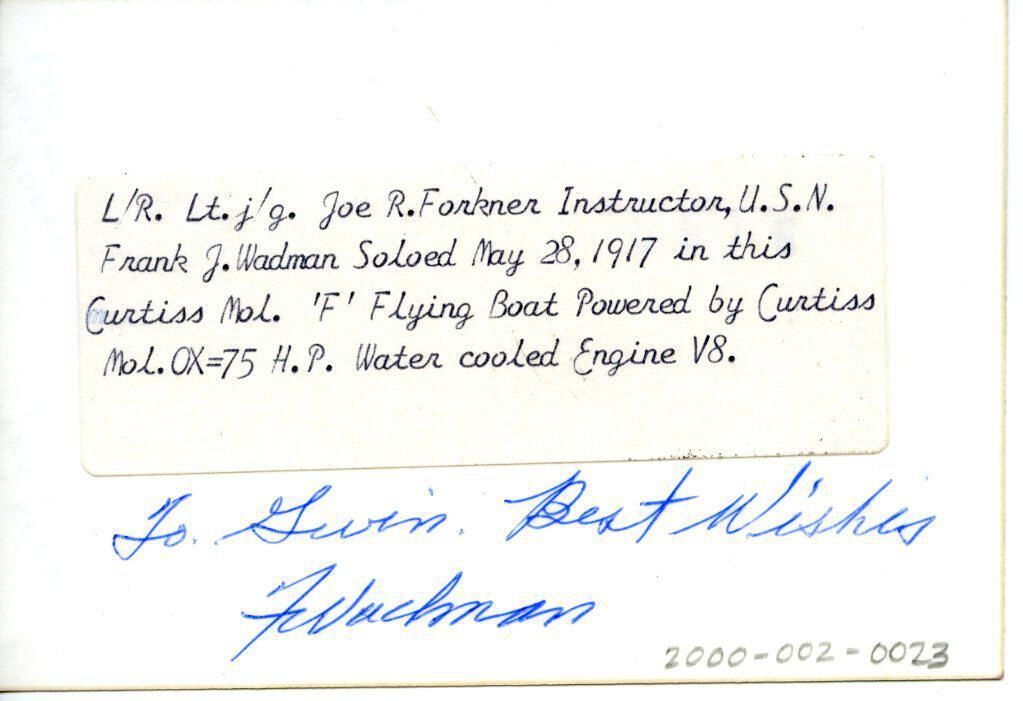 L/R. Lt. j/g. Joe R. Forkner Instructor, U.S.N.
Frank J. Wadman Soloed May 28, 1917 in this
Curtiss Mol. 'F' Flying Boat Powered by Curtiss
Mol. OX=75 H.P. Water cooled Engine V8.
To. Gwin. Best Wishes
FWadman
2000-002-0023